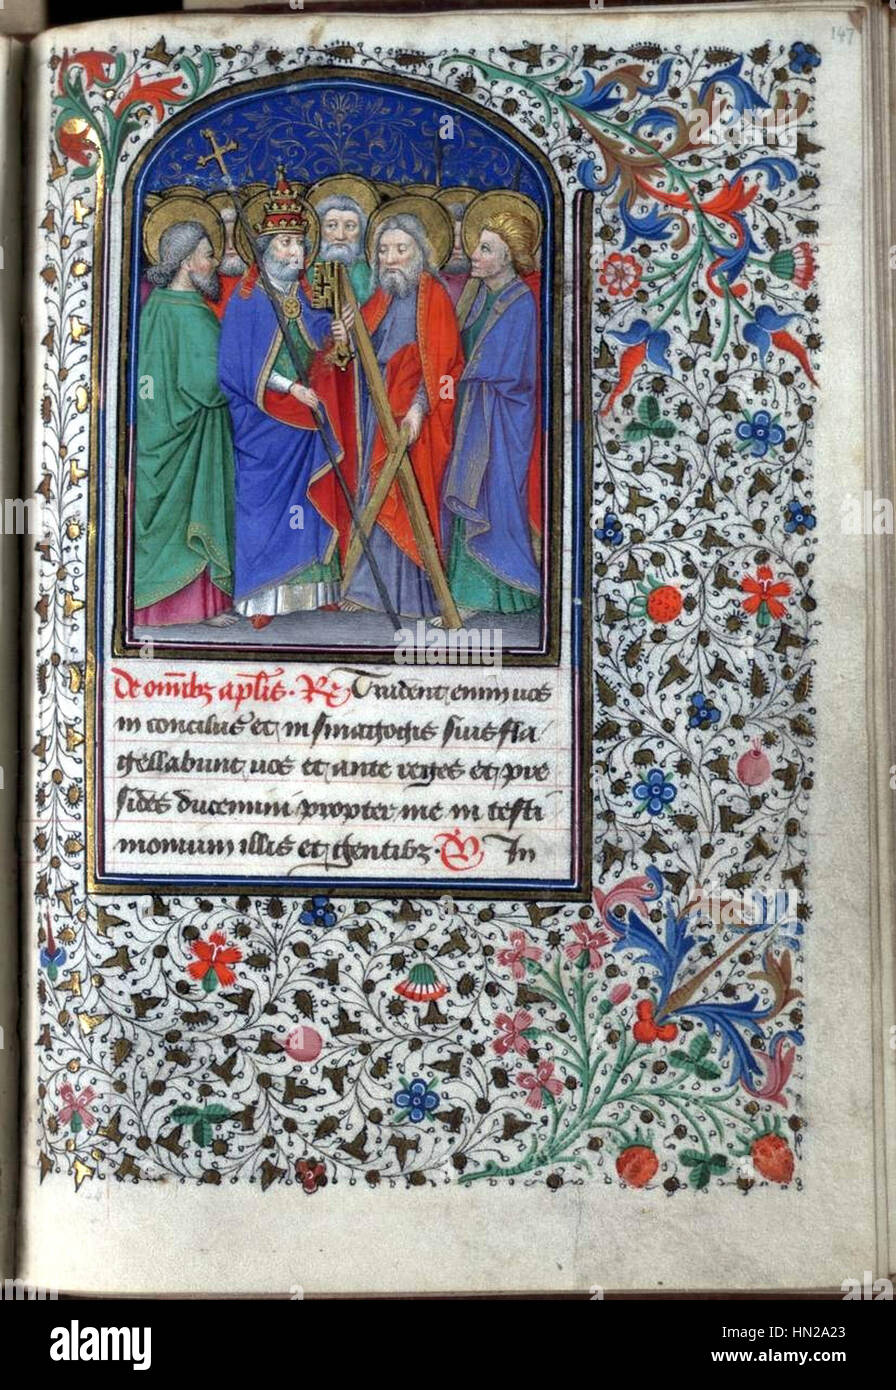 147
De om̄ibꝫ apl̄is · R̄e Tradent enim uos
in concilus et in sinagogis suis fla/
gellabunt uos et ante reges et pre
sides ducemini propter me in testi
monium illis et gentibꝫ · V In
alamy
Image ID: HN2A23
www.alamy.com